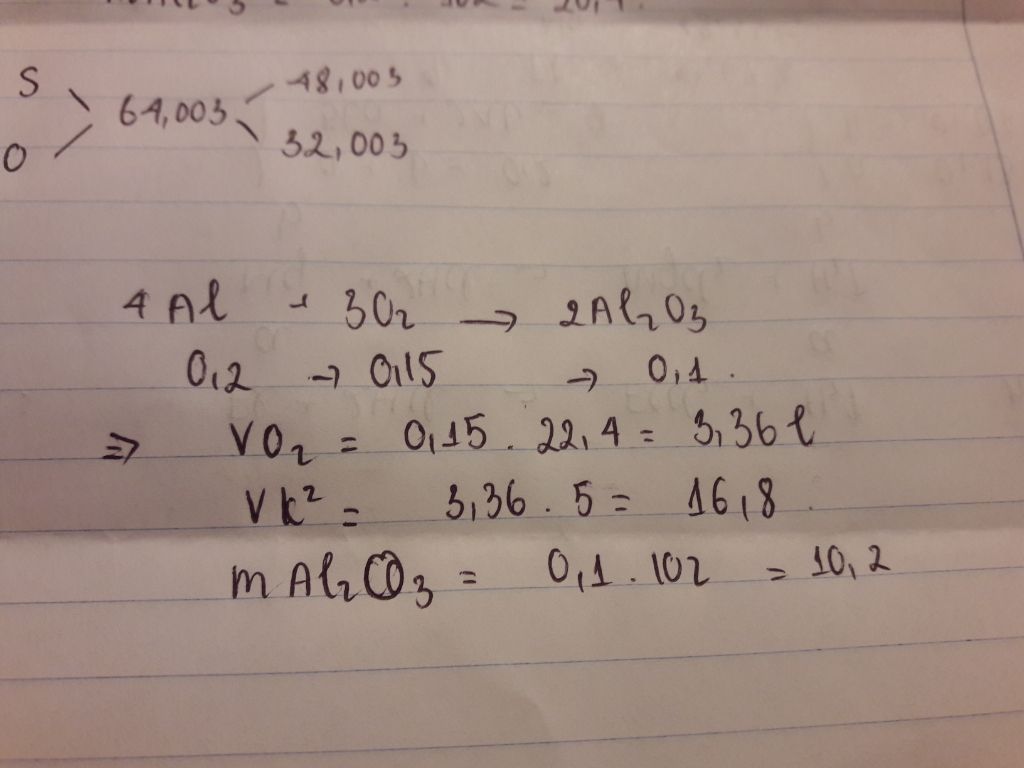 S
48,003
64,003
O
32,003
4 Al + 3O₂ → 2Al₂O₃
0,2 → 0,15 → 0,1.
⇒ VO₂ = 0,15 . 22,4 = 3,36 l
Vk² = 3,36 . 5 = 16,8 .
m Al₂O₃ = 0,1 . 102 = 10,2